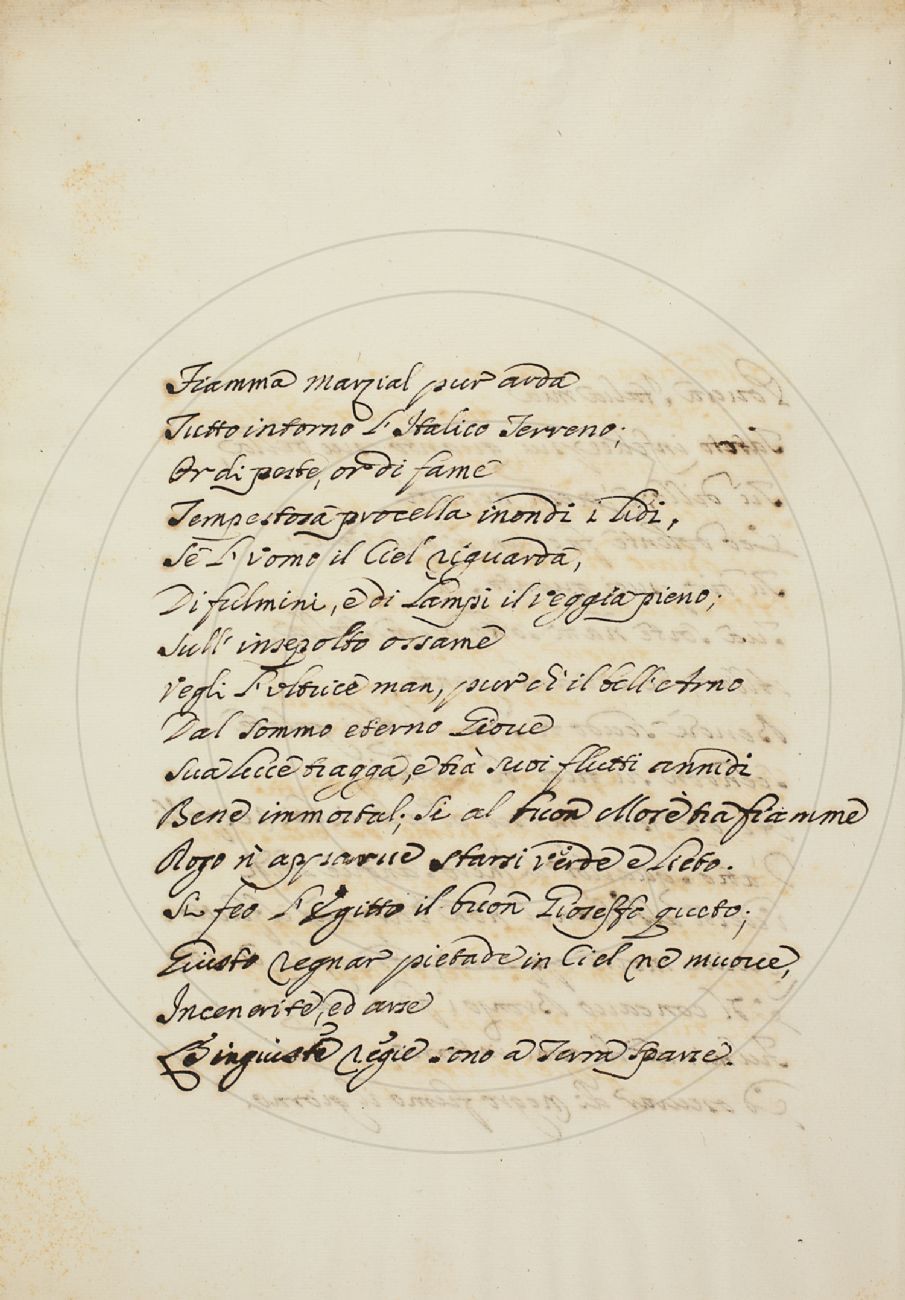 Fiamma marzial pur arda
Tutto intorno l'Italico Terreno;
Or di peste, or di fame
Tempestosa procella inondi i lidi,
Se l'vomo il Ciel riguarda,
Di fulmini, e di Lampi il veggia pieno;
Sull' insepolto ossame
Vegli l'ultrice man, pur ch' il bell'Arno
Dal sommo eterno Giove
Sua luce tragga, e trà suoi flutti annidi
Bene immortal; Si al buon Mosè tra fiamme
Rogo n' apparve starsi verde e lieto.
Si feo l'Egitto il buon Gioseffo queto;
Giusto regnar pietade in Ciel ne muove,
Incenerite, ed arse
Le ingiuste regie sono a Terra sparse.